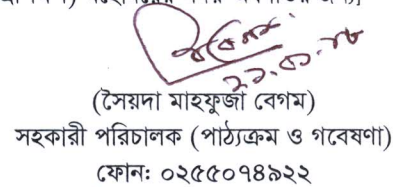 ২১.০১.১৮
(সৈয়দা মাহফুজা বেগম)
সহকারী পরিচালক (পাঠ্যক্রম ও গবেষণা)
ফোনঃ ০২৫৫০৭৪৯২২